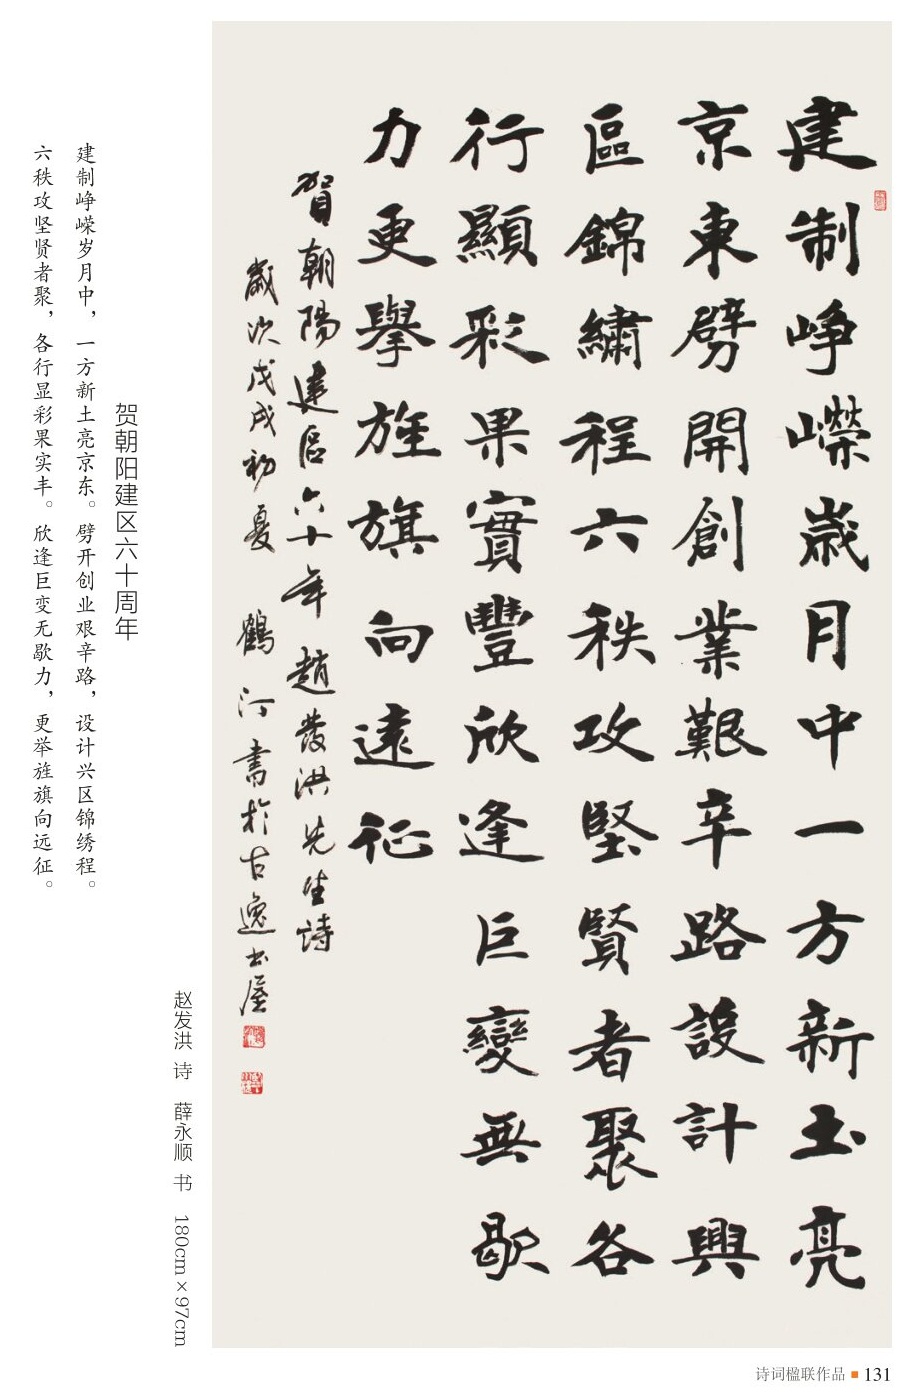 建制崢嶸歲月中一方新土亮
京東劈開創業艱辛路設計興
區錦繡程六秩攻堅賢者聚各
行顯彩果實豐欣逢巨變無歇
力更舉旌旗向遠征
賀朝陽建區六十年趙發洪先生詩
歲次戊戌初夏 鶴汀書於古逸書屋
赵发洪 诗 薛永顺 书 180cm×97cm
贺朝阳建区六十周年
建制峥嵘岁月中，一方新土亮京东。劈开创业艰辛路，设计兴区锦绣程。
六秩攻坚贤者聚，各行显彩果实丰。欣逢巨变无歇力，更举旌旗向远征。
诗词楹联作品 131